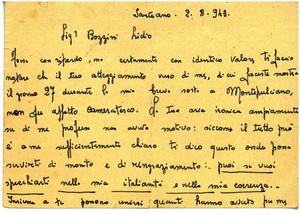 Sarteano. 2.8.943.
Sigr Bozzini Lidio
Non con ritardo, ma certamente con identico valore ti faccio
notare che il tuo atteggiamento verso di me, di cui facesti mostra
il giorno 27 durante la mia breve sosta a Montepulciano,
non fu affatto cameratesco. La tua aria ironica ampiamente
su di me profusa non aveva motivo: siccome il tutto però
è a me sufficientemente chiaro ti dico questo onde possa
servirti di monito e di ringraziamento: puoi se vuoi
specchiarti nella mia italianità e nella mia coerenza..
Insieme a te possono unirsi quanti hanno avuto per me